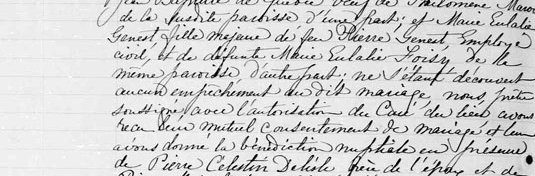 de Québec veuf de Philomène
de la susdite paroisse d'une part; et Marie Eulalie
Genest fille majeure de feu Pierre Genest, Employé
civil, et de défunte Marie Eulalie Loisy de la
même paroisse, d'autre part; ne s'étant découvert
aucun empêchement au dit mariage, nous, prêtre
soussigné, avec l'autorisation du Curé du lieu avons
reçu leur mutuel consentement de mariage et leur
avons donné la bénédiction nuptiale en présence
de Pierre Célestin Delisle père de l'époux et de